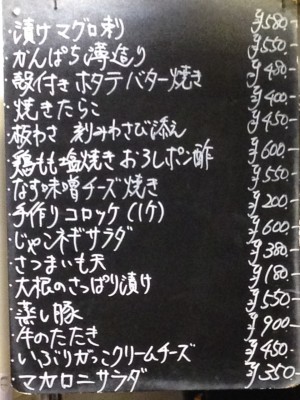 ・漬けマグロ刺 ¥580-
・かんぱち薄造り ¥550-
・殻付きホタテバター焼き ¥480-
・焼きたらこ ¥400-
・板わさ 刻みわさび添え ¥450-
・鶏もも塩焼きおろしポン酢 ¥600-
・なす味噌チーズ焼き ¥550-
・手作りコロッケ(1ケ) ¥200-
・じゃこネギサラダ ¥600-
・さつまいも天 ¥380-
・大根のさっぱり漬け ¥180-
・蒸し豚 ¥550-
・牛のたたき ¥900-
・いぶりがっこクリームチーズ ¥450-
・マカロニサラダ ¥350-